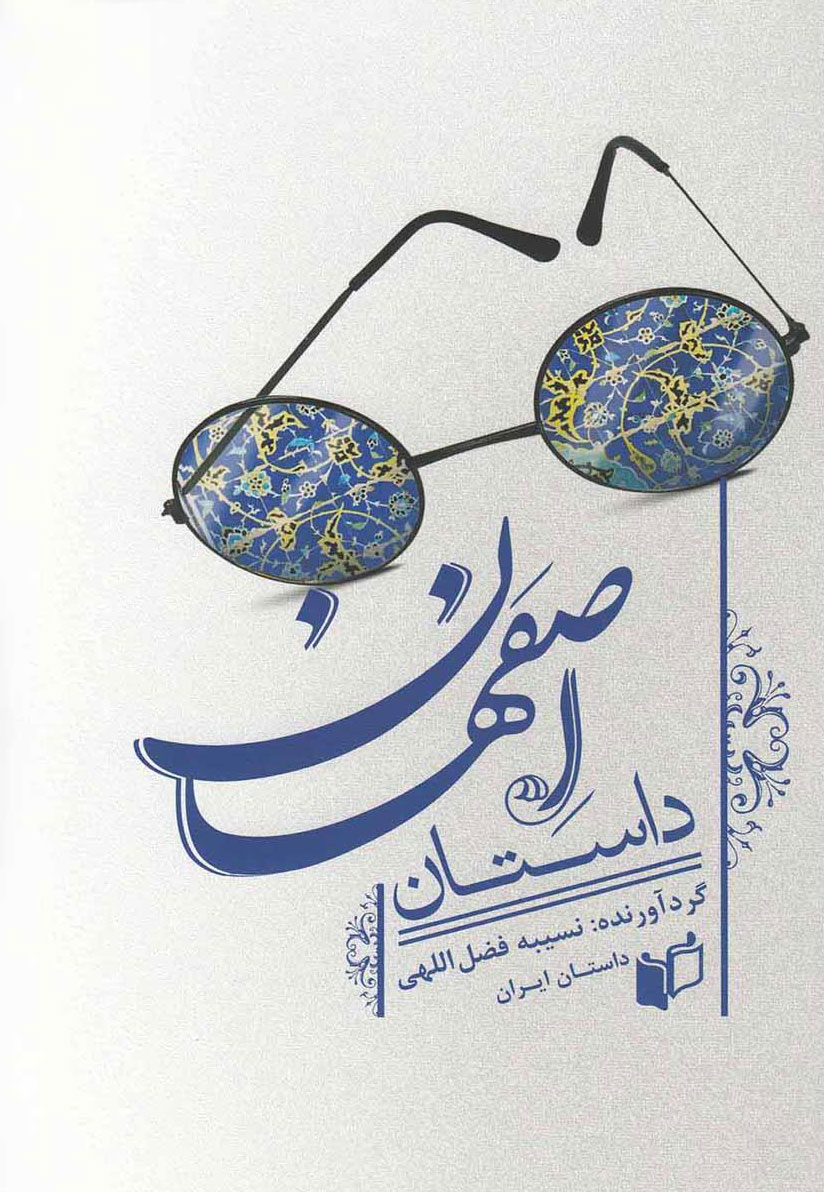 اصفهان
داستان
گردآورنده: نسیبه فضل اللهی
داستان ایران